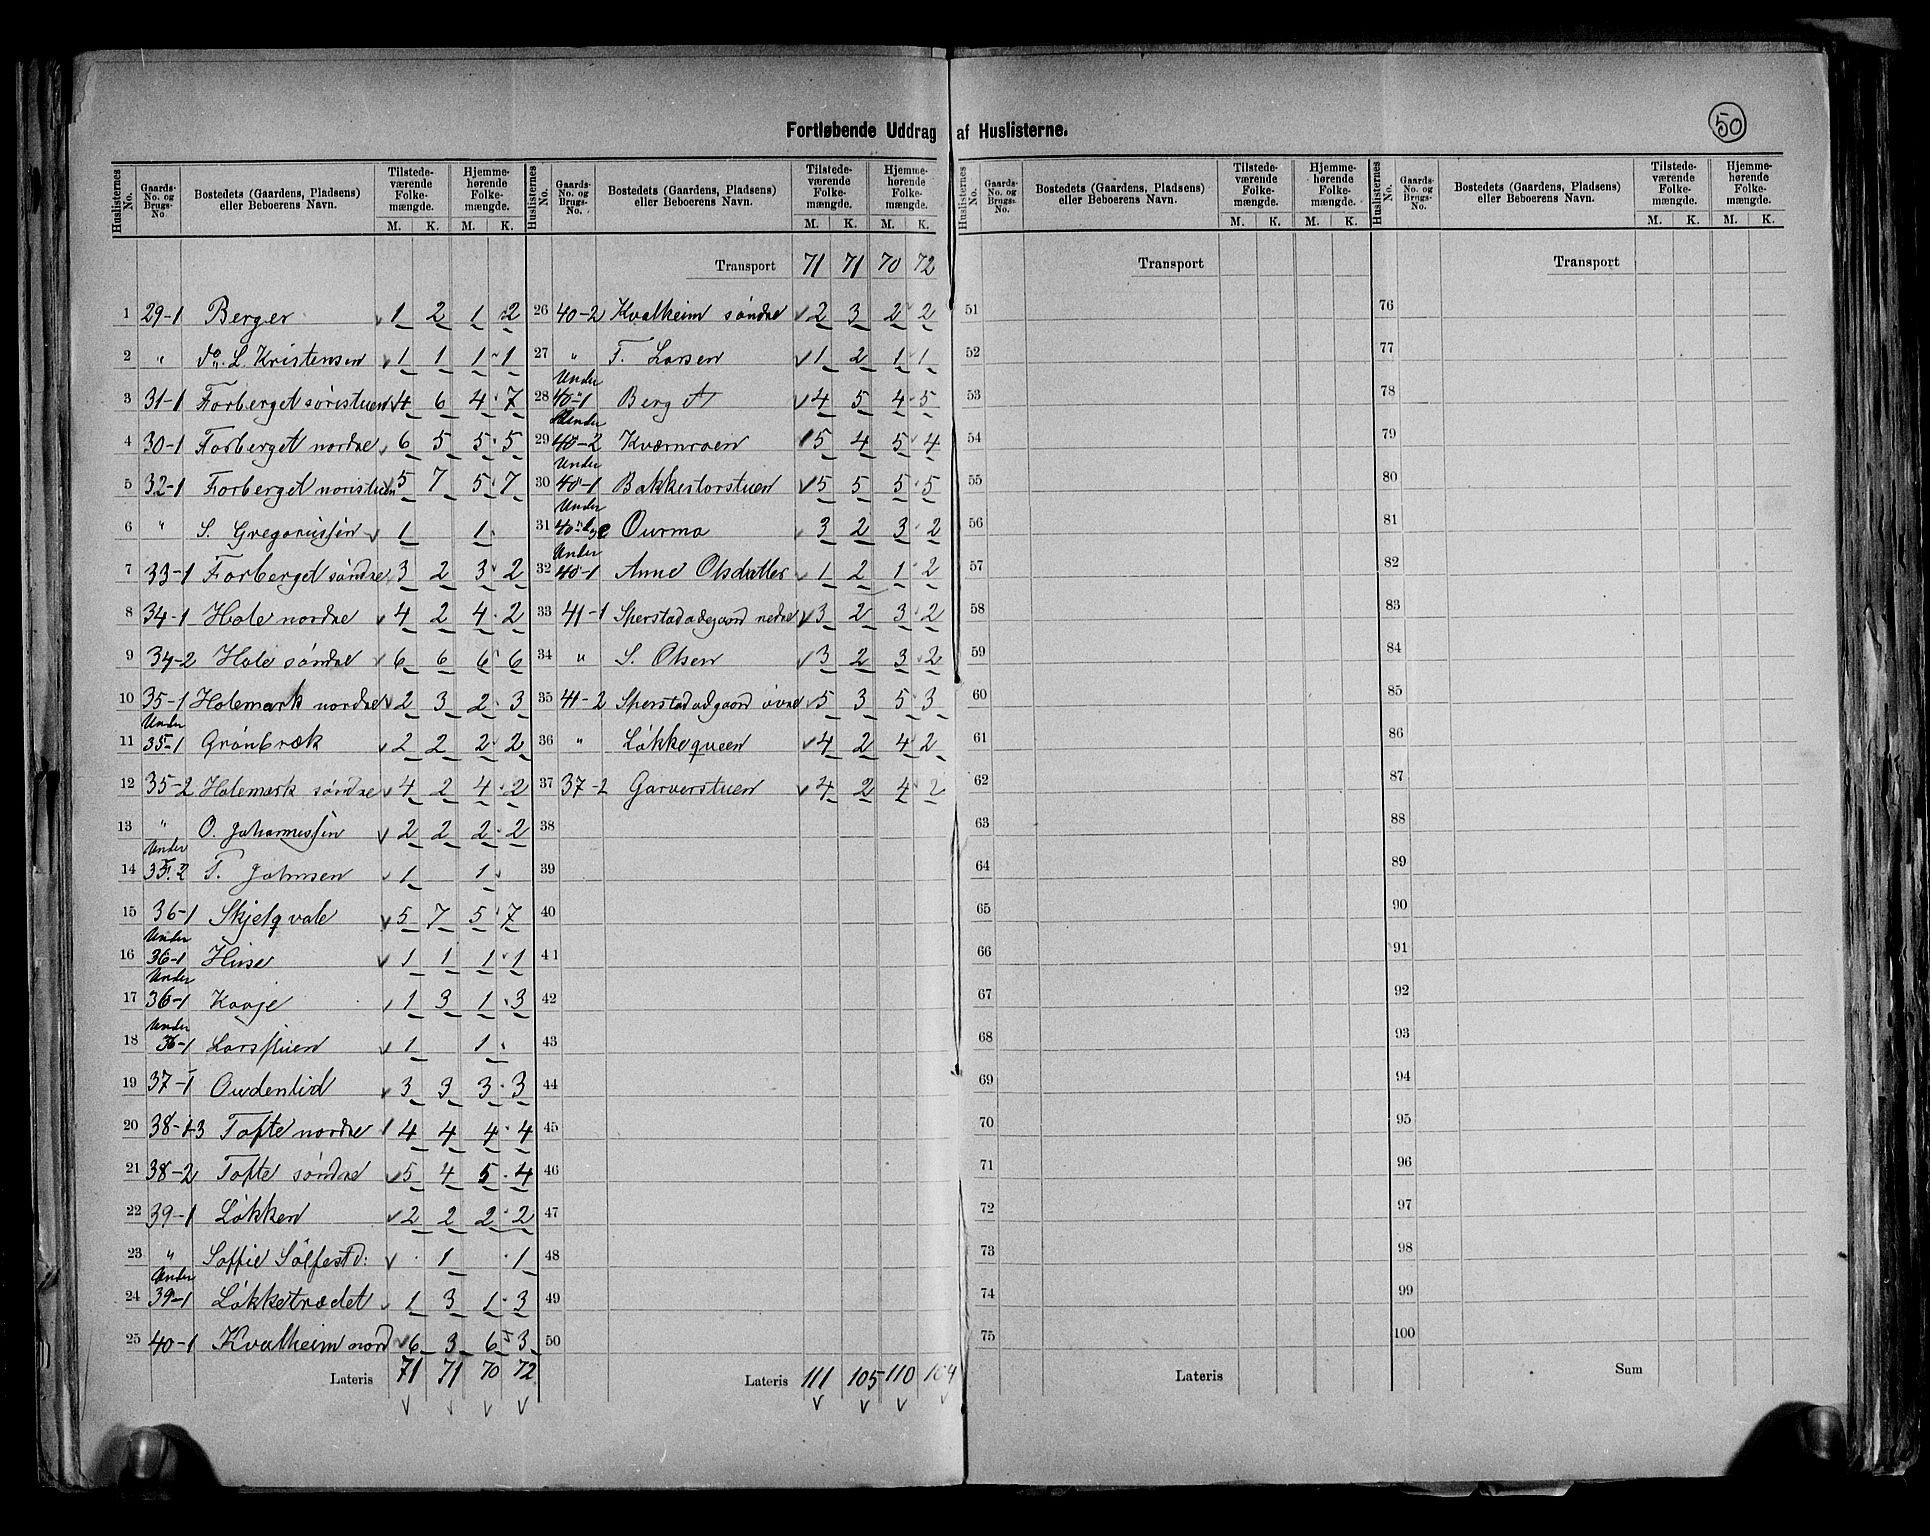 50
Fortløbende Uddrag af Huslisterne.
Huslisternes No. Gaards-No. og Brugs-No. Bostedets (Gaardens, Pladsens) eller Beboerens Navn. Tilstedeværende Folkemængde. M. K. Hjemmehørende Folkemængde. M. K.
1 29-1 Berger 1 2 1 2
2 " do. L. Kristensen 1 1 1 1
3 31-1 Forberget søristuen 4 6 4 7
4 30-1 Forberget nordre 6 5 5 5
5 32-1 Forberget noristuen 5 7 5 7
6 " S. Gregoriussen 1 1
7 33-1 Forberget søndre 3 2 3 2
8 34-1 Hole nordre 4 2 4 2
9 34-2 Hole søndre 6 6 6 6
10 35-1 Holemark nordre 2 3 2 3
11 Under 35-1 Grønbræk 2 2 2 2
12 35-2 Holemark søndre 4 2 4 2
13 " O. Johannessen 2 2 2 2
14 Under 35-2 T. Johnsen 1 1
15 36-1 Skjelqvale 5 7 5 7
16 Under 36-1 Huse 1 1 1 1
17 Under 36-1 Kaaje 1 3 1 3
18 Under 36-1 Larsstuen 1 1
19 37-1 Oudenlid 3 3 3 3
20 38-1-3 Tofte nordre 4 4 4 4
21 38-2 Tofte søndre 5 4 5 4
22 39-1 Løkken 2 2 2 2
23 " Soffie Sølfestd: 1 1
24 Under 39-1 Løkketrædet 1 3 1 3
25 40-1 Kvalheim nord 6 3 6 3
Lateris 71 71 70 72
Huslisternes No. Gaards-No. og Brugs-No. Bostedets (Gaardens, Pladsens) eller Beboerens Navn. Tilstedeværende Folkemængde. M. K. Hjemmehørende Folkemængde. M. K.
Transport 71 71 70 72
26 40-2 Kvalheim søndre 2 3 2 2
27 " T. Larsen 1 2 1 1
28 Under 40-1 Berget 4 5 4 5
29 Under 40-2 Kværnroen 5 4 5 4
30 Under 40-1 Bakkestorstuen 5 5 5 5
31 Under Ourmo 3 2 3 2
32 Under 40-1 Anne Olsdatter 1 2 1 2
33 41-1 Sperstadadgaard nedre 3 2 3 2
34 " S. Olsen 3 2 3 2
35 41-2 Sperstadadgaard øvre 5 3 5 3
36 " Løkkequeen 4 2 4 2
37 37-2 Garverstuen 4 2 4 2
38
39
40
41
42
43
44
45
46
47
48
49
50
Lateris 111 105 110 104
Huslisternes No. Gaards-No. og Brugs-No. Bostedets (Gaardens, Pladsens) eller Beboerens Navn. Tilstedeværende Folkemængde. M. K. Hjemmehørende Folkemængde. M. K.
Transport
51
52
53
54
55
56
57
58
59
60
61
62
63
64
65
66
67
68
69
70
71
72
73
74
75
Lateris
Huslisternes No. Gaards-No. og Brugs-No. Bostedets (Gaardens, Pladsens) eller Beboerens Navn. Tilstedeværende Folkemængde. M. K. Hjemmehørende Folkemængde. M. K.
Transport
76
77
78
79
80
81
82
83
84
85
86
87
88
89
90
91
92
93
94
95
96
97
98
99
100
Sum